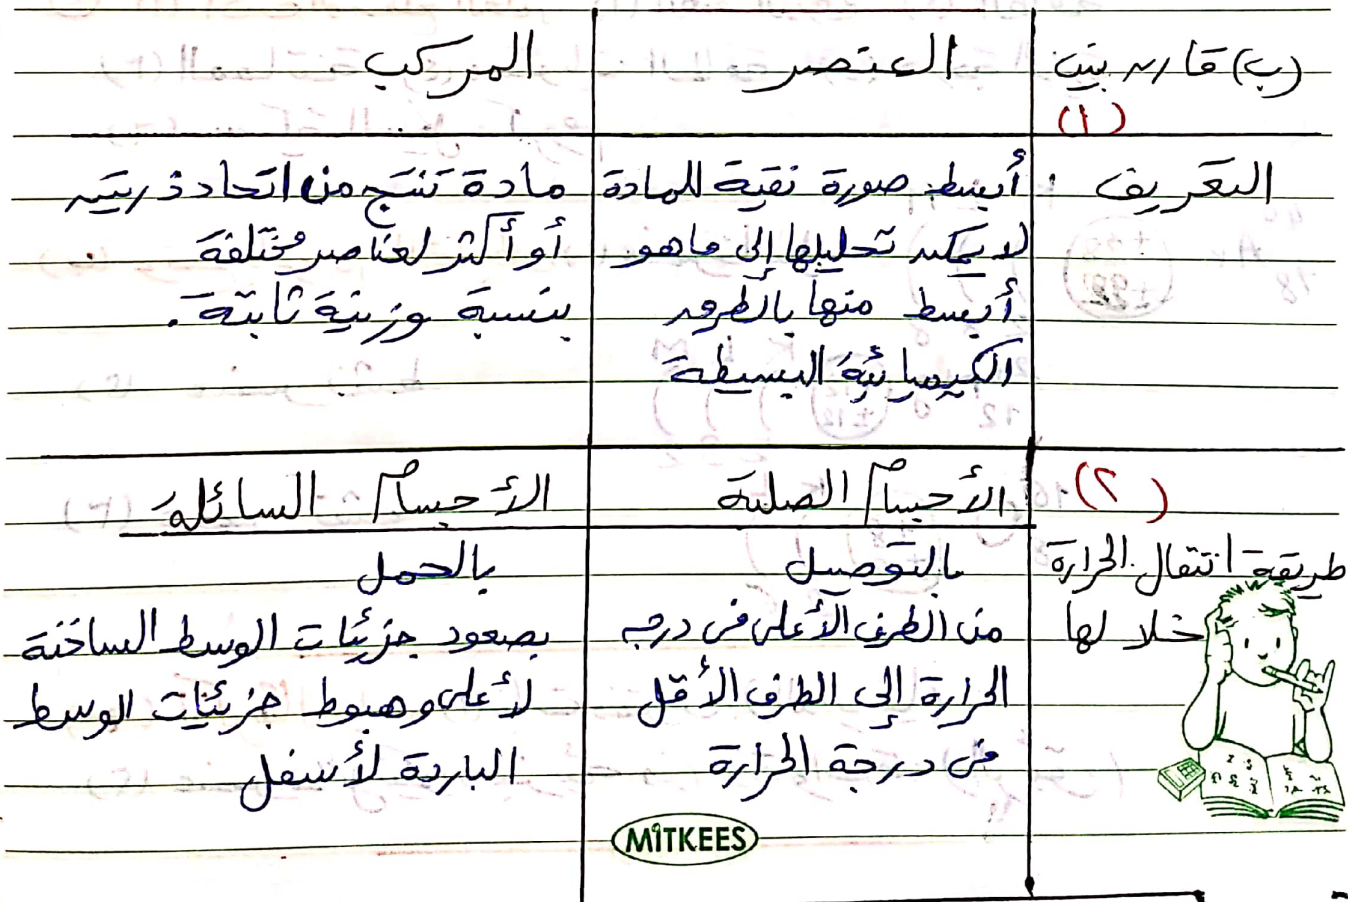 (ب) قارن بين
(١)
العنصر
المركب
التعريف
أبسط صورة نقية للمادة
لا يمكن تحليلها إلى ما هو
أبسط منها بالطرق
الكيميائية البسيطة
مادة تنتج من اتحاد ذرتين
أو أكثر لعناصر مختلفة
بنسبة وزنية ثابتة.
(٢)
الأجسام الصلبة
الأجسام السائلة
طريقة انتقال الحرارة
خلالها
بالتوصيل
من الطرف الأعلى فى درجه
الحرارة إلى الطرف الأقل
فى درجة الحرارة
بالحمل
بصعود جزيئات الوسط الساخنة
لأعلى وهبوط جزيئات الوسط
الباردة لأسفل
MITKEES